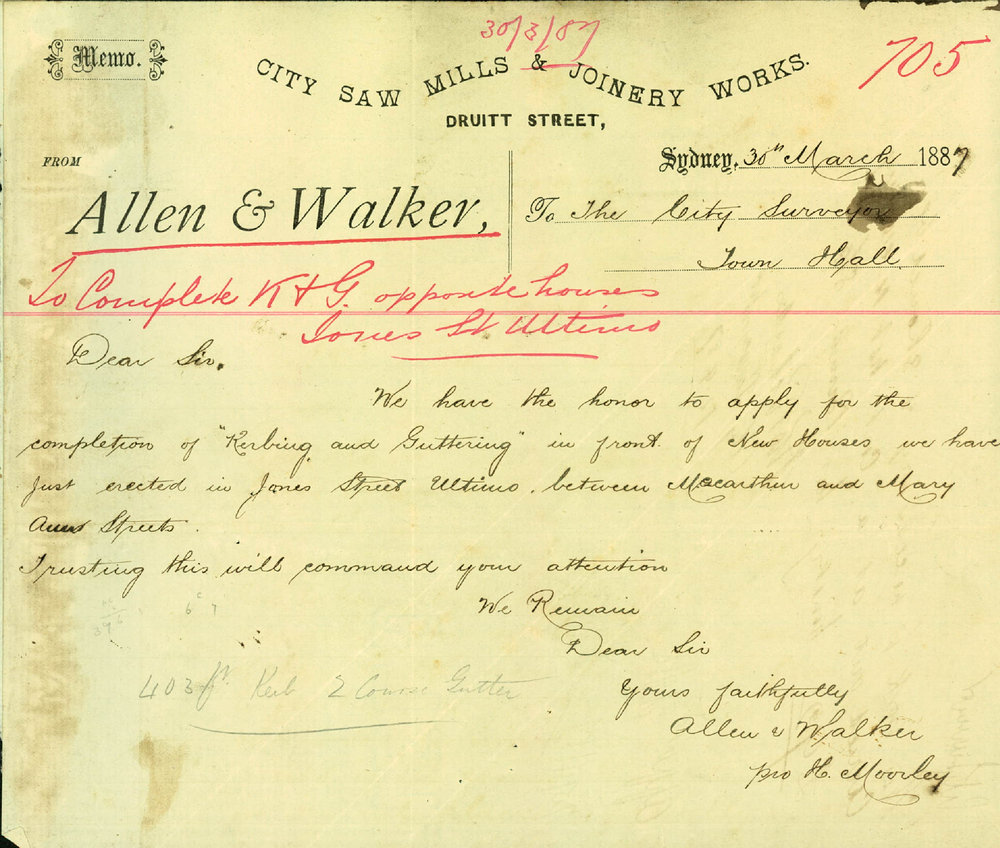 30/3/87
Memo.
705
CITY SAW MILLS & JOINERY WORKS.
DRUITT STREET,
FROM
Sydney, 30th March 1887
Allen & Walker,
To The City Surveyor
Town Hall
To Complete K & G. opposite houses
Jones St Ultimo
Dear Sir,
We have the honor to apply for the
completion of "Kerbing and Guttering" in front of New Houses we have
just erected in Jones Street Ultimo. between Macarthur and Mary
Ann Streets.
Trusting this will command your attention
We Remain
Dear Sir
403 ft Kerb 2 Course Gutter
Yours faithfully
Allen & Walker
pro H. Moorley